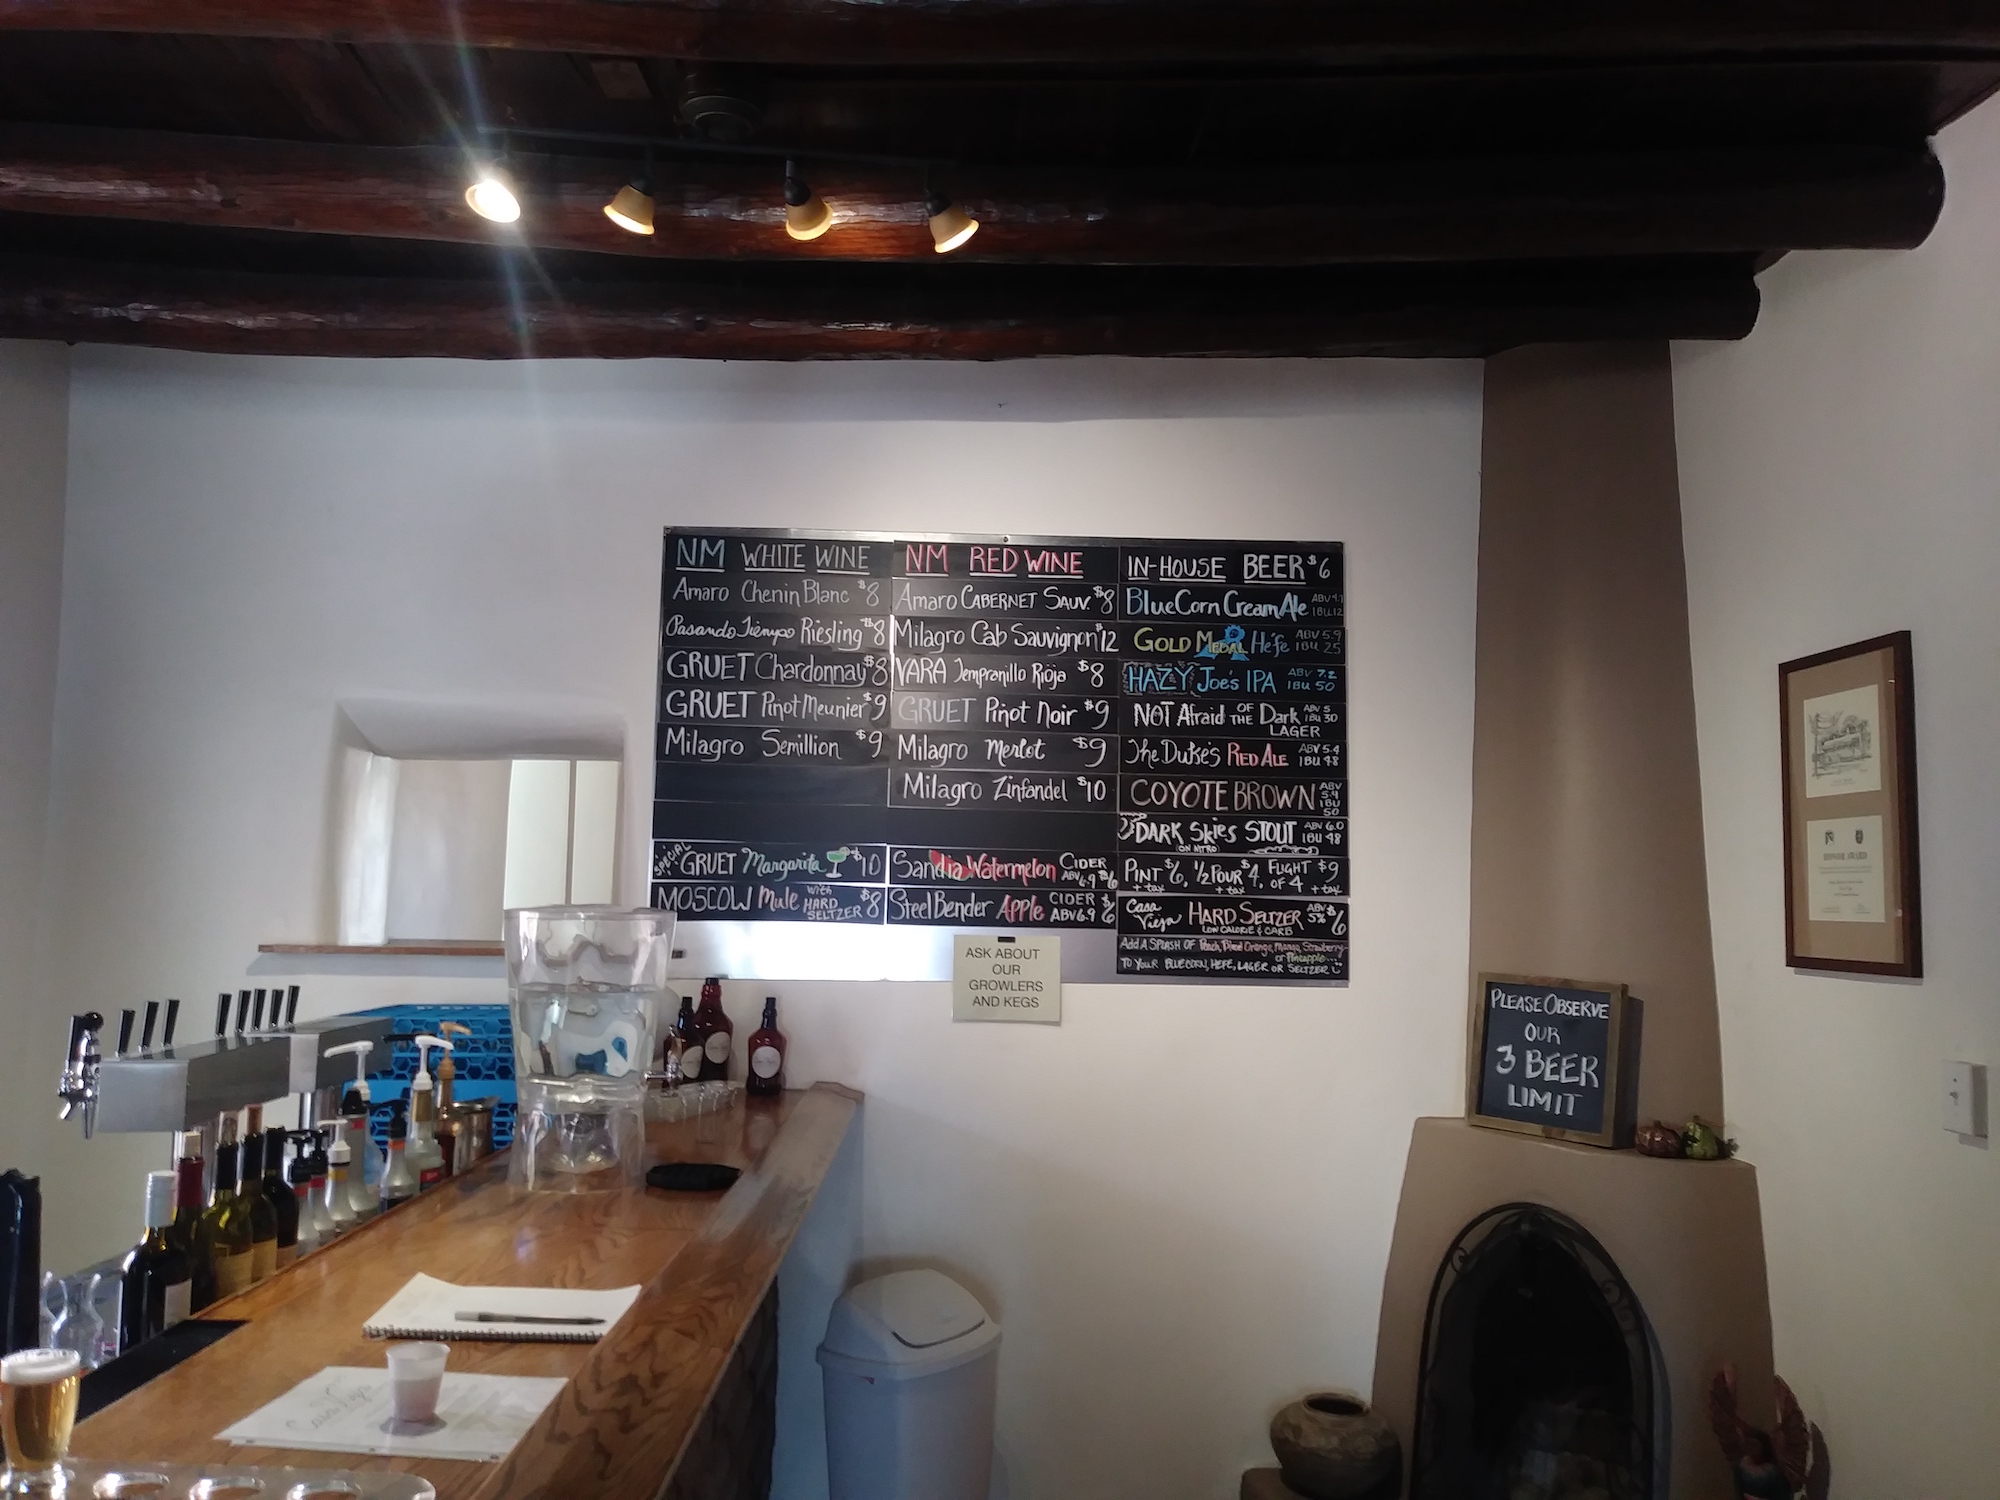 NM WHITE WINE
Amaro Chenin Blanc $8
Pasando Tiempo Riesling $8
GRUET Chardonnay $8
GRUET Piñot Meunier $9
Milagro Semillion $9
SPECIAL GRUET Margarita $10
MOSCOW Mule with HARD SELTZER $8
NM RED WINE
Amaro CABERNET SAUV. $8
Milagro Cab Sauvignon $12
VARA Tempranillo Rioja $8
GRUET Piñot Noir $9
Milagro Merlot $9
Milagro Zinfandel $10
Sandia Watermelon CIDER ABV 6.9 $6
Steel Bender Apple CIDER ABV 6.9 $6
IN-HOUSE BEER $6
Blue Corn Cream Ale ABV 4.7 IBU 12
GOLD MEDAL Hefe ABV 5.9 IBU 25
HAZY Joe's IPA ABV 7.2 IBU 50
NOT Afraid OF THE Dark LAGER ABV 5 IBU 30
The Duke's RED ALE ABV 5.4 IBU 48
COYOTE BROWN ABV 5.9 IBU 50
DARK Skies STOUT ABV 6.0 IBU 48
(ON NITRO)
PINT $6, 1/2 POUR $4, FLIGHT OF 4 $9
+ tax + tax + tax
Casa Vieja HARD SELTZER ABV 5% $6
LOW CALORIE & CARB
Add A SPLASH OF Peach, Blood Orange, Mango, Strawberry
or Pineapple...
TO YOUR BLUECORN, HEFE, LAGER OR SELTZER
ASK ABOUT
OUR
GROWLERS
AND KEGS
PLEASE OBSERVE
OUR
3 BEER
LIMIT